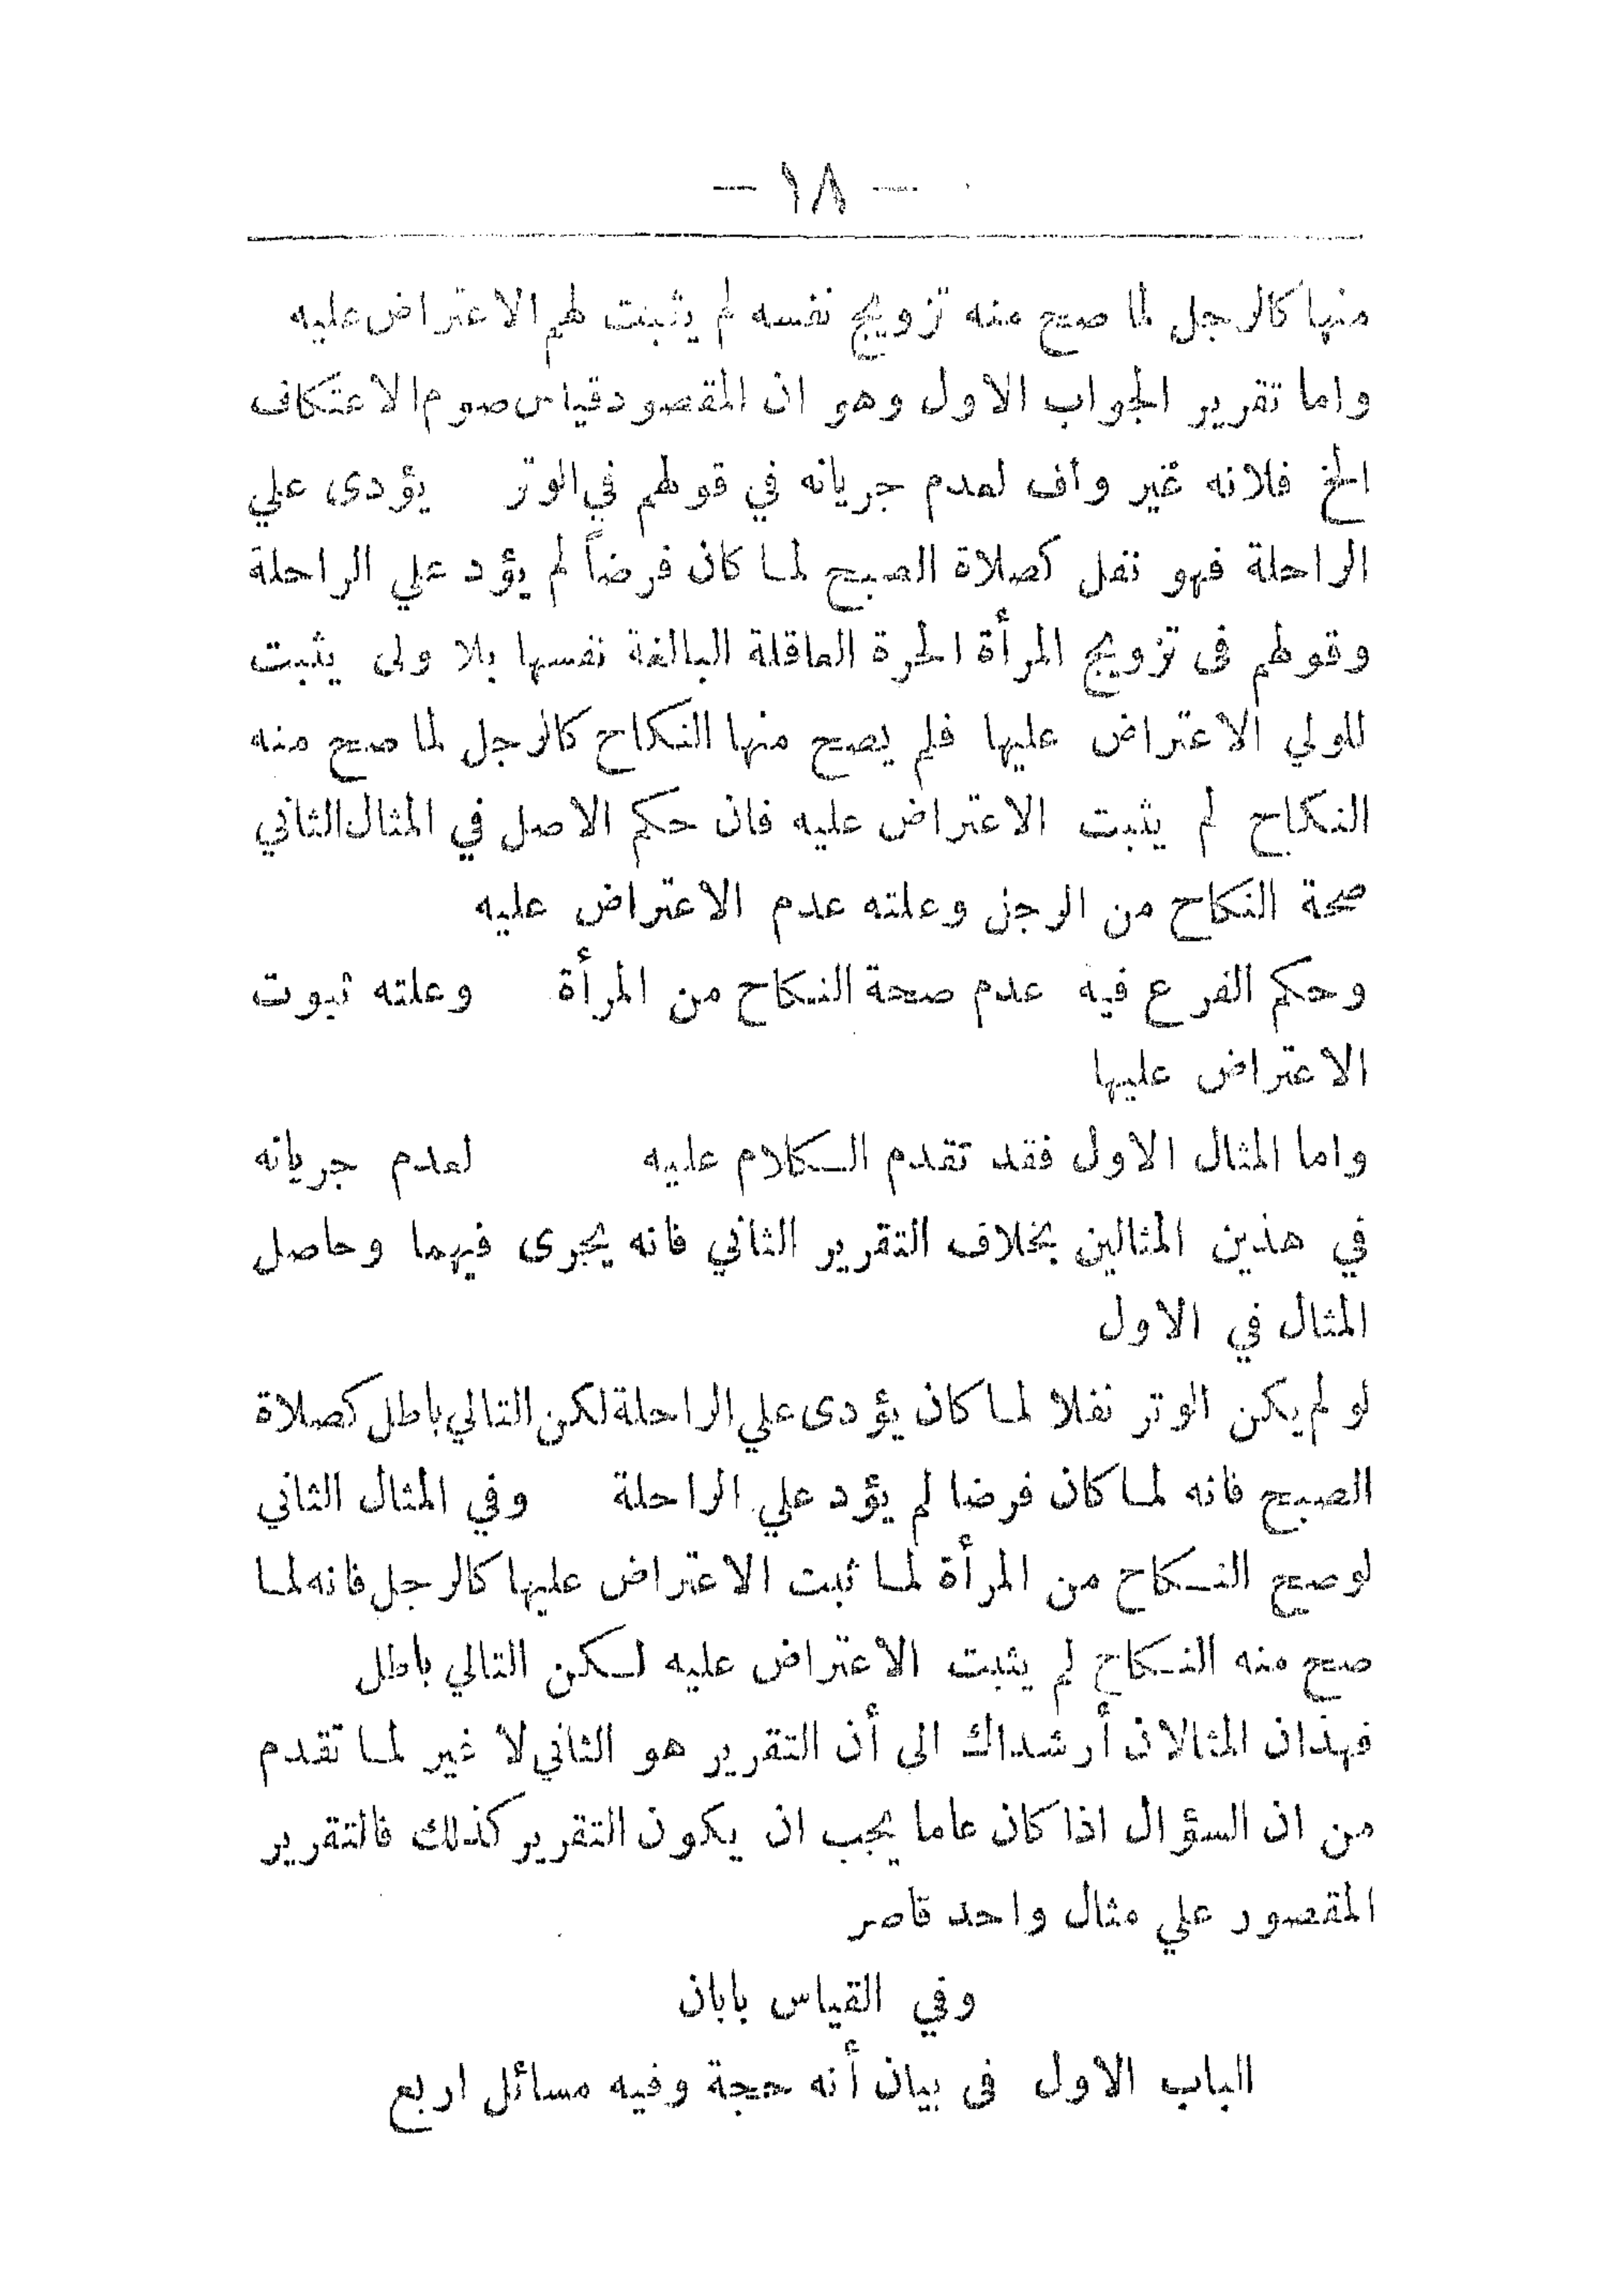 — ١٨ —
منها كالرجل لما صح منه تزويج نفسه لم يثبت لهم الاعتراض عليه
واما تقرير الجواب الاول وهو ان المقصود قياس صوم الاعتكاف
الخ فلانه غير واف لعدم جريانه في قولهم في الوتر يؤدى علي
الراحلة فهو نفل كصلاة الصبح لما كان فرضاً لم يؤد علي الراحلة
وقولهم فى تزويج المرأة الحرة العاقلة البالغة نفسها بلا ولى يثبت
للولي الاعتراض عليها فلم يصح منها النكاح كالرجل لما صح منه
النكاح لم يثبت الاعتراض عليه فان حكم الاصل في المثال الثاني
صحة النكاح من الرجل وعلته عدم الاعتراض عليه
وحكم الفرع فيه عدم صحة النكاح من المرأة وعلته ثبوت
الاعتراض عليها
واما المثال الاول فقد تقدم الكلام عليه لعدم جريانه
في هذين المثالين بخلاف التقرير الثاني فانه يجرى فيهما وحاصل
المثال في الاول
لو لم يكن الوتر نفلا لما كان يؤدى علي الراحلة لكن التالي باطل كصلاة
الصبح فانه لما كان فرضا لم يؤد علي الراحلة وفي المثال الثاني
لو صح النكاح من المرأة لما ثبت الاعتراض عليها كالرجل فانه لما
صح منه النكاح لم يثبت الاعتراض عليه لكن التالي باطل
فهذان المثالان أرشداك الى أن التقرير هو الثاني لا غير لما تقدم
من ان السؤال اذا كان عاما يجب ان يكون التقرير كذلك فالتقرير
المقصور علي مثال واحد قاصر
وفي القياس بابان
الباب الاول فى بيان أنه حجة وفيه مسائل اربع